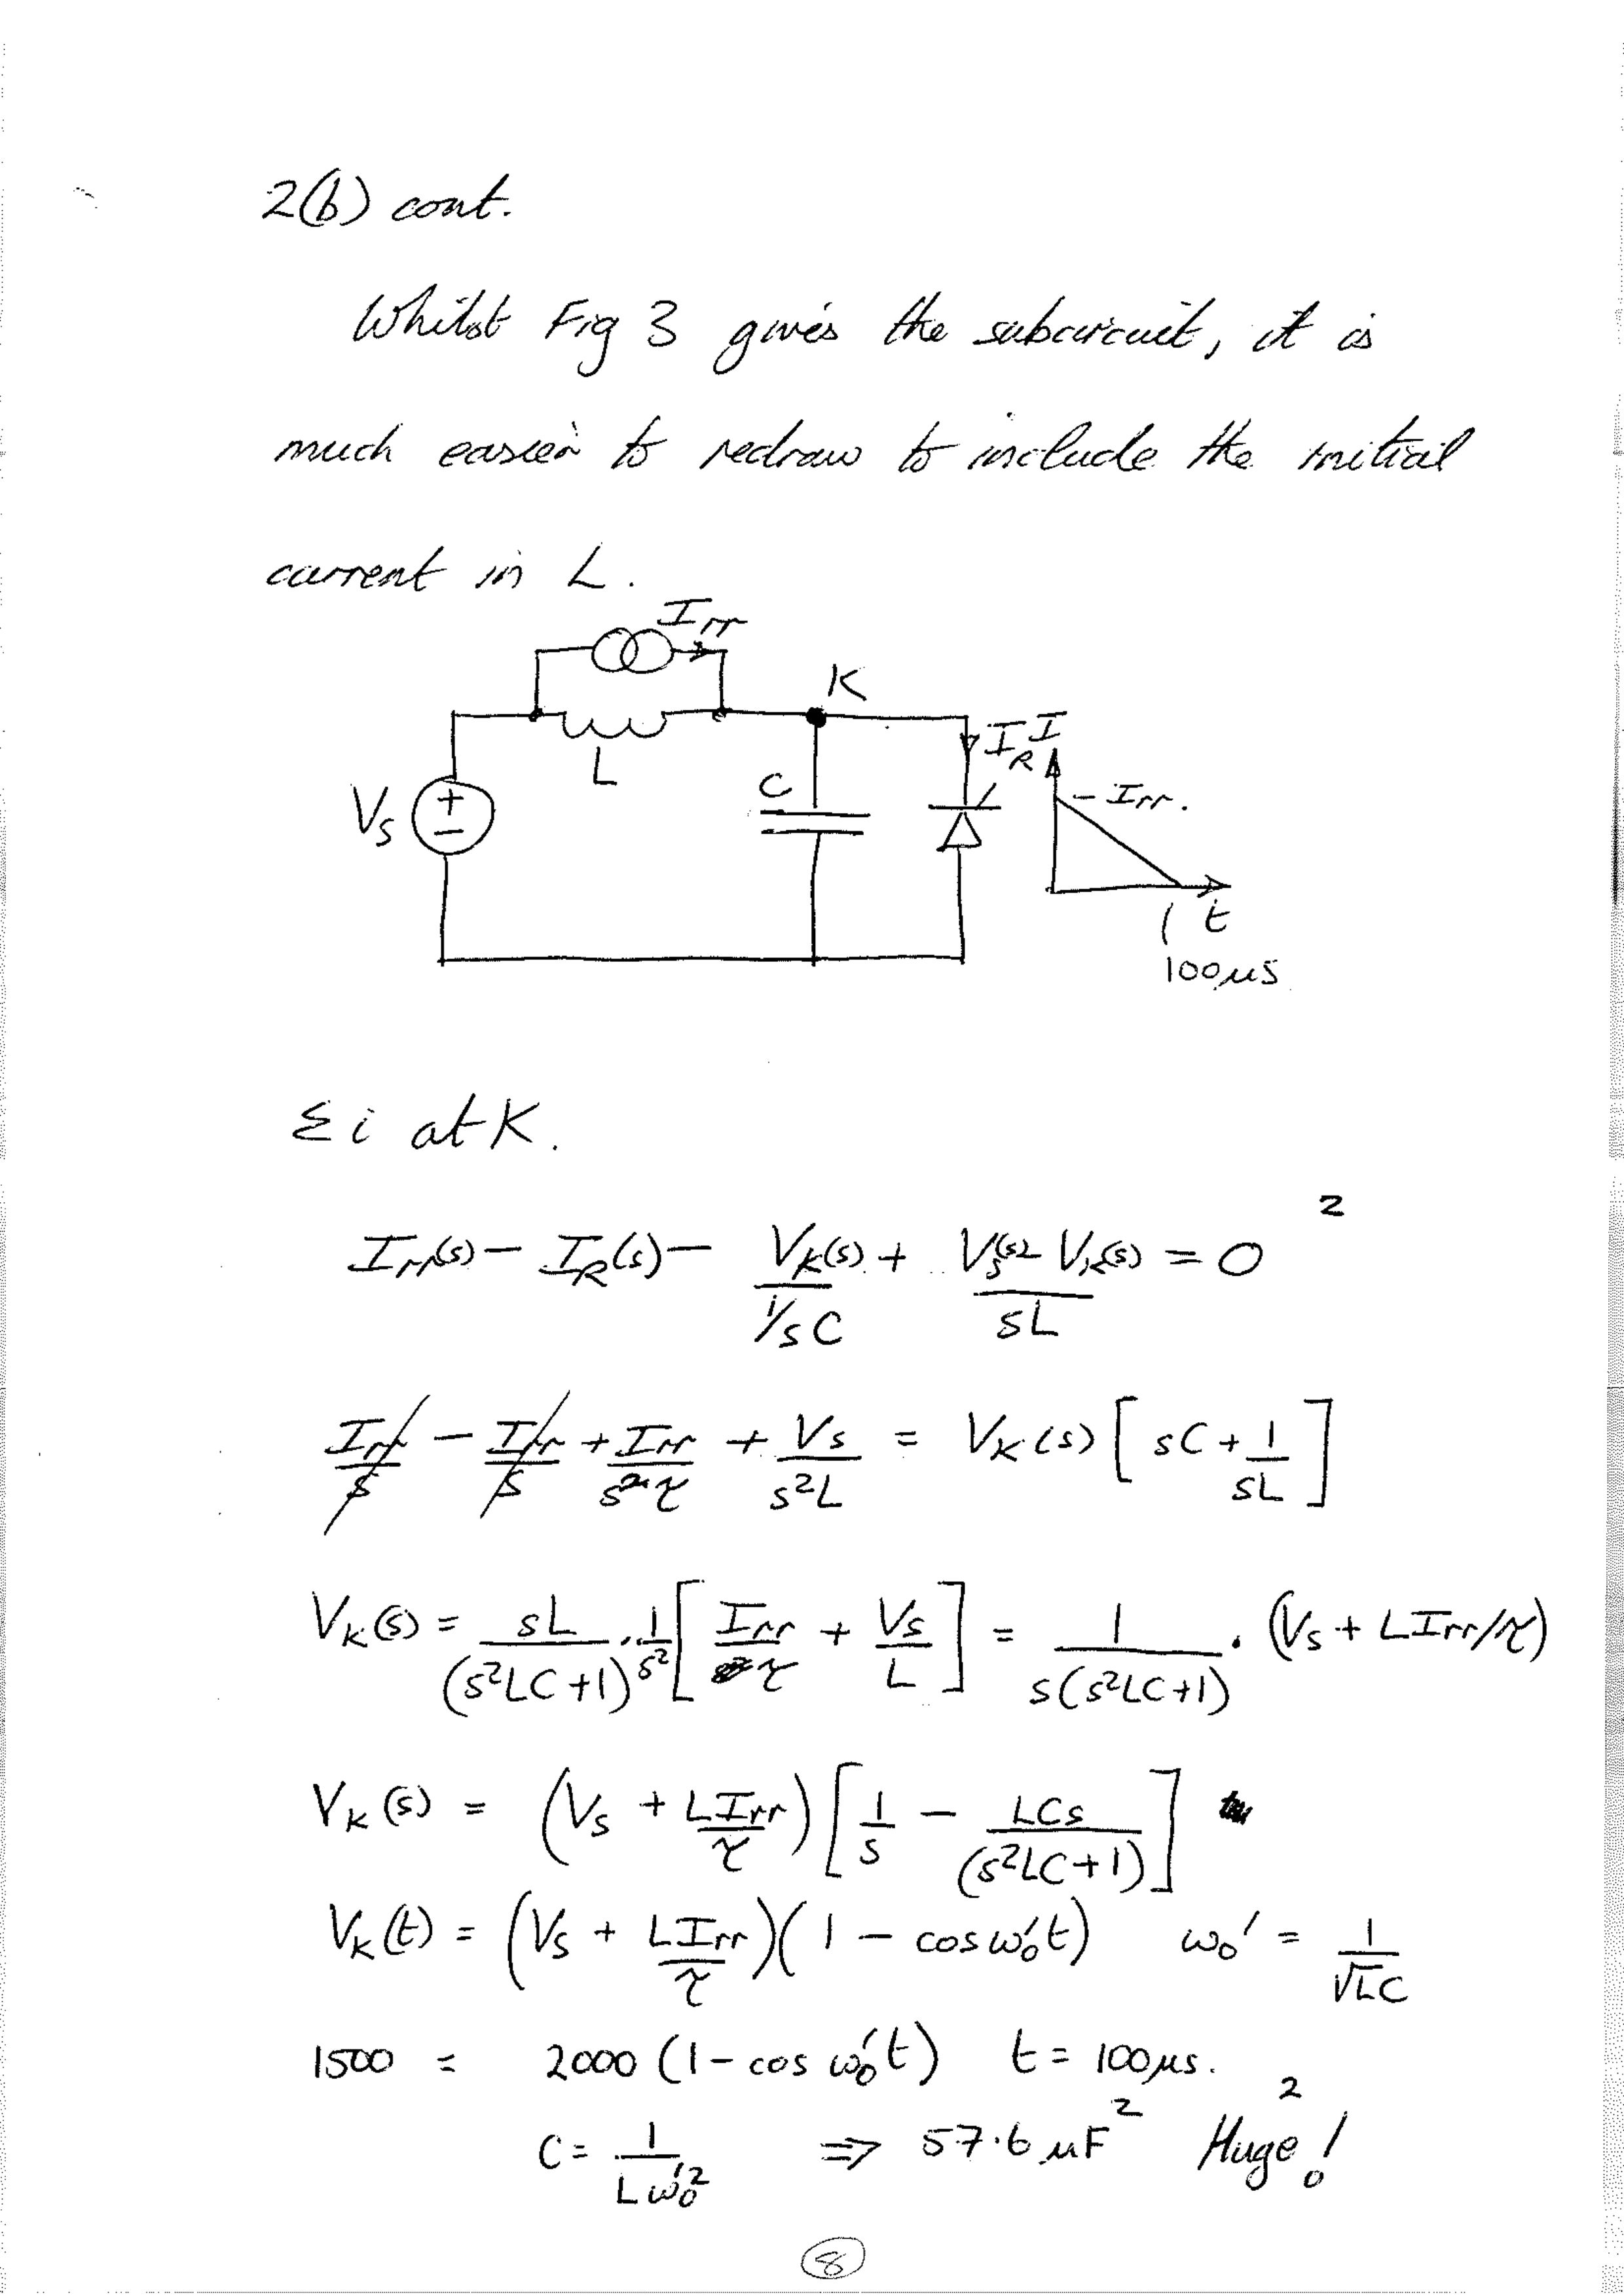 2(b) cont.
Whilst Fig 3 gives the subcircuit, it is
much easier to redraw to include the initial
current in L.
Irr
K
L
C
I_R
I
Vs
+
−
- Irr.
t
100μs
Σi at K.
2
Irr(s) − I_R(s) − V_K(s)/(1/sC) + (Vs(s) − V_K(s))/sL = 0
Irr/s − Irr/s + Irr/s²τ + Vs/s²L = V_K(s) [sC + 1/sL]
V_K(s) = sL/(s²LC+1) . 1/s² [Irr/τ + Vs/L] = 1/s(s²LC+1) . (Vs + LIrr/τ)
V_K(s) = (Vs + LIrr/τ) [1/s − LCs/(s²LC+1)]
V_K(t) = (Vs + LIrr/τ)(1 − cos ω₀'t) ω₀' = 1/√LC
1500 = 2000 (1 − cos ω₀'t) t = 100μs.
C = 1/Lω₀'² ⇒ 57.6 μF 2 Huge! 2
8